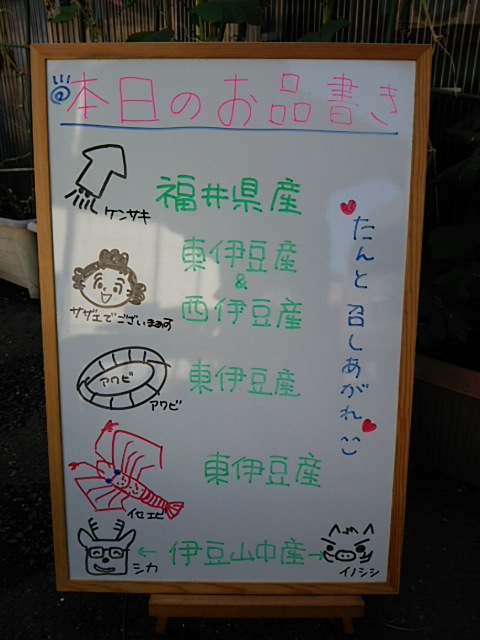 @本日のお品書き
ケンサキ
福井県産
東伊豆産
&
西伊豆産
サザエでございまぁす
アワビ
アワビ
東伊豆産
イセエビ
東伊豆産
シカ
← 伊豆山中産 →
イノシシ
たんと召しあがれ